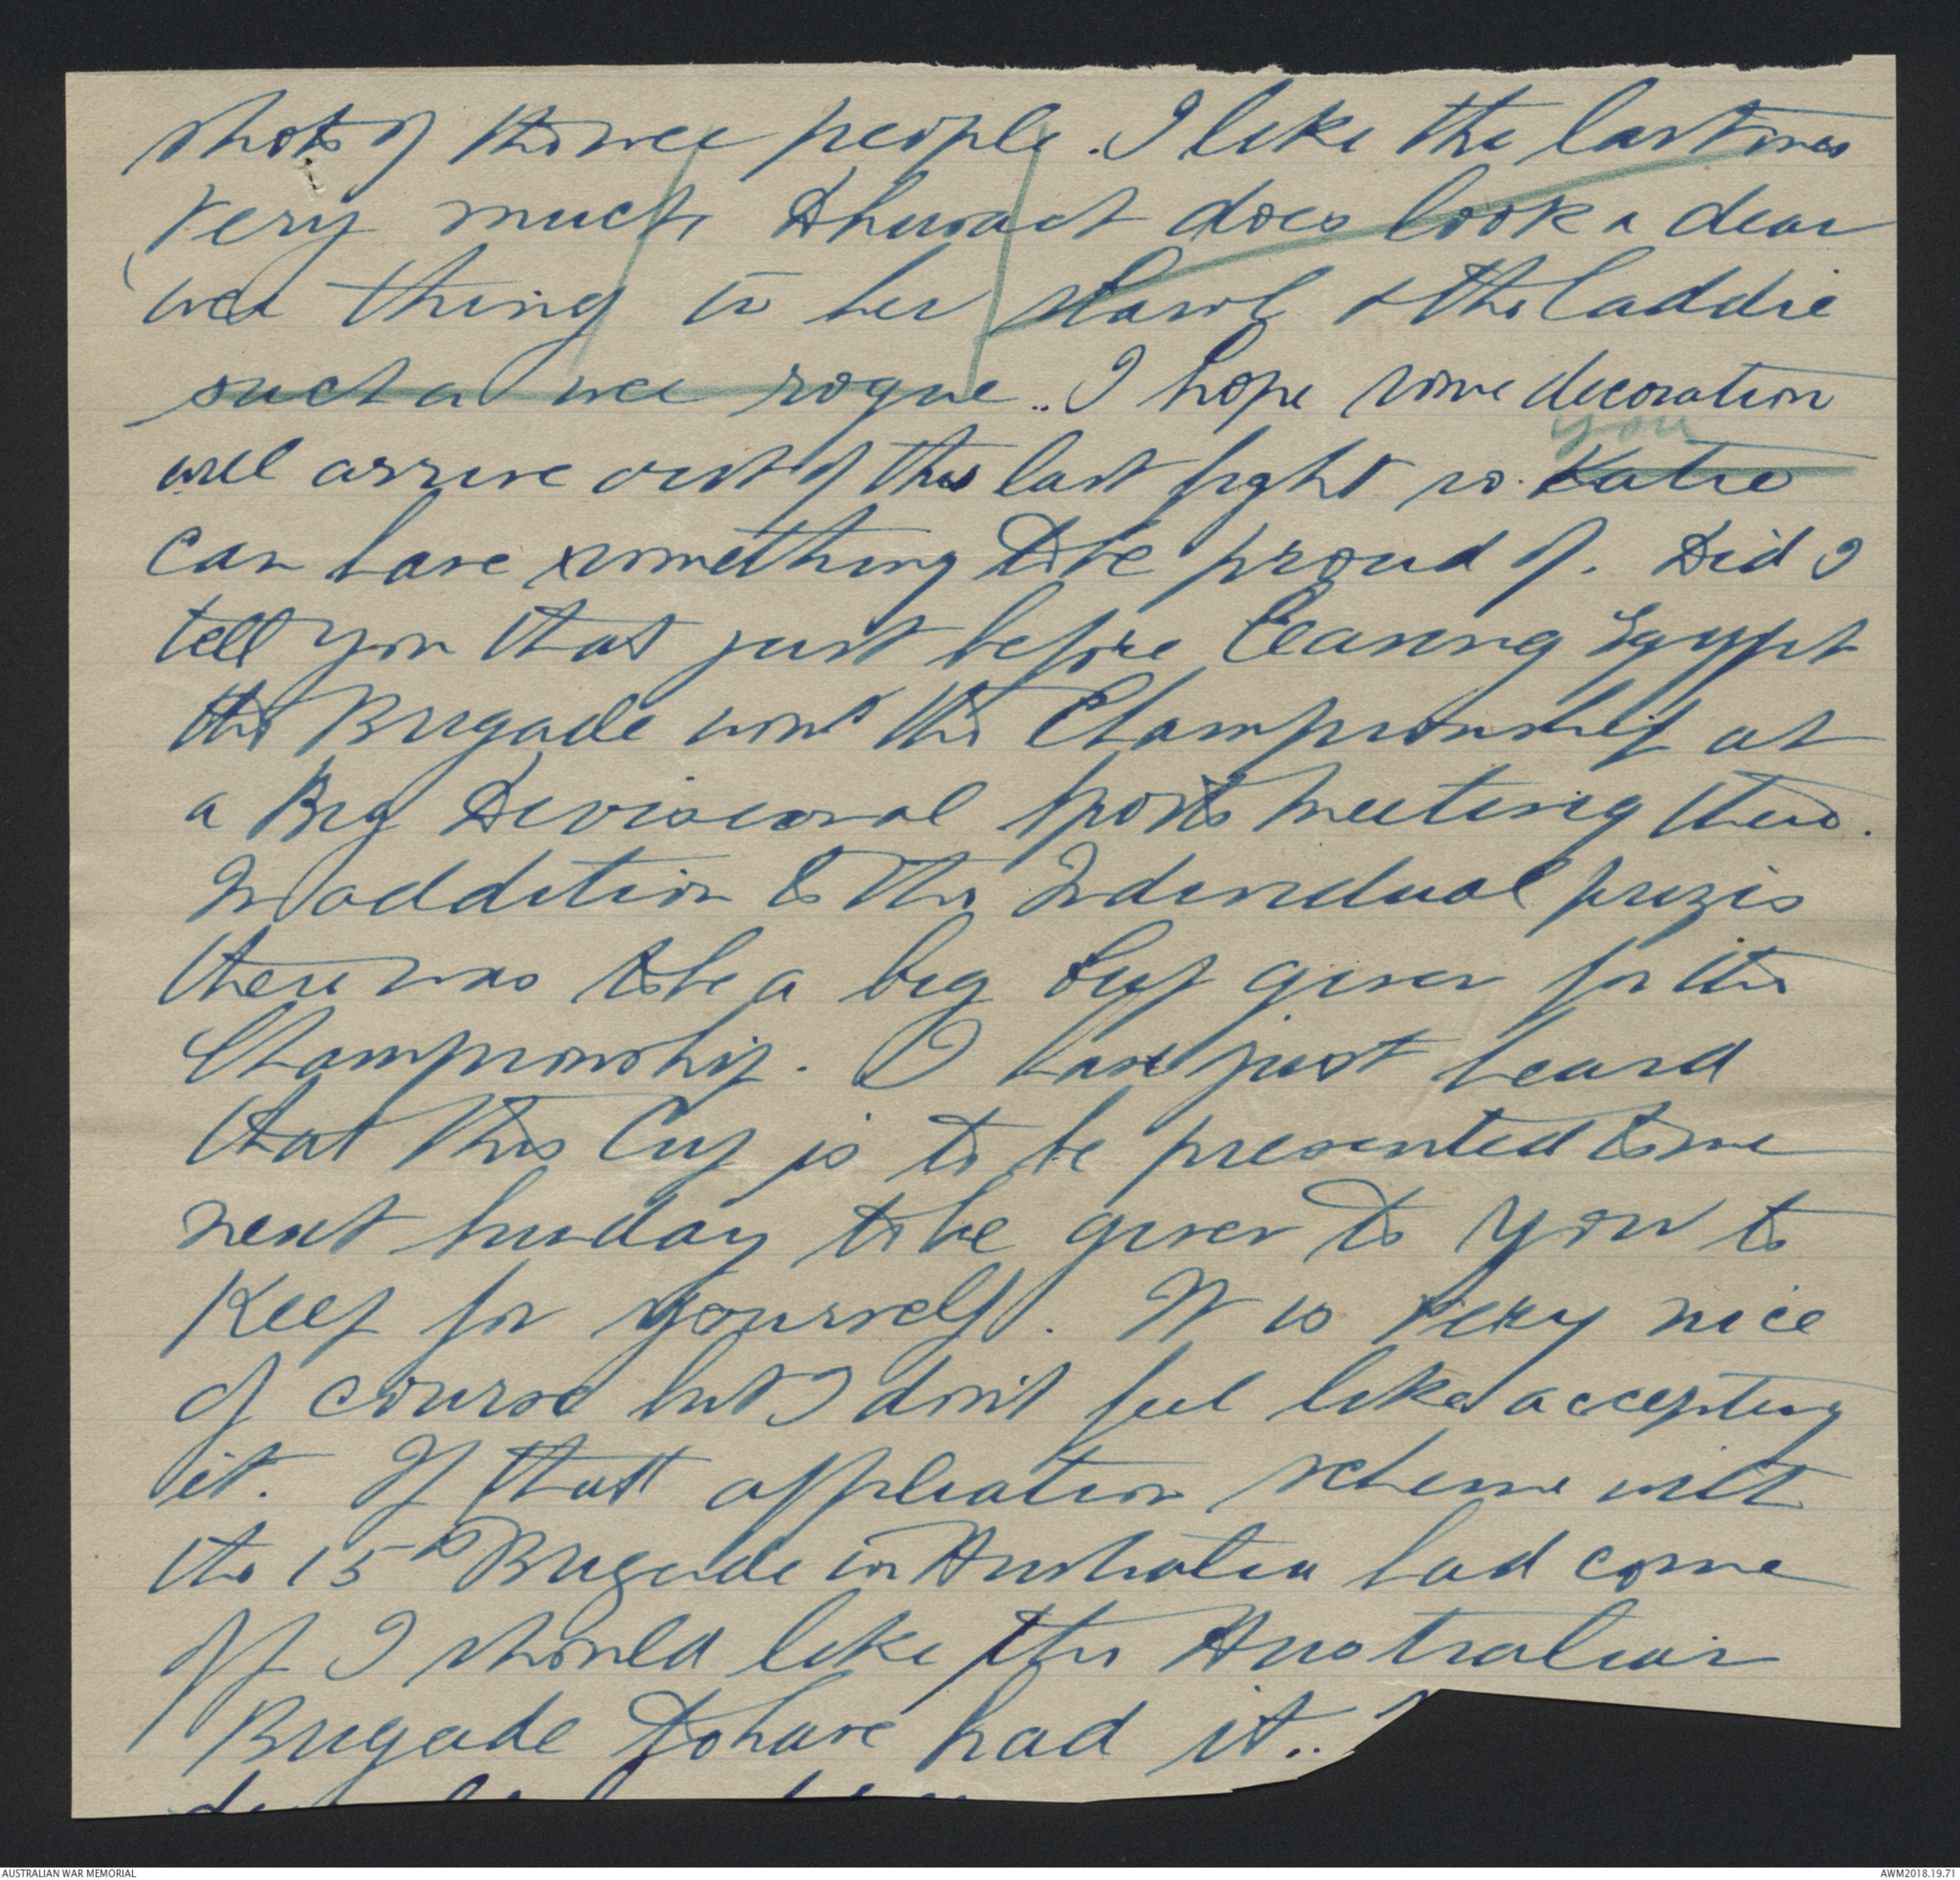 shots of the wee people. I like the last ones
very much does look a dear
wee thing in her shawl & the laddie
such a wee rogue.. I hope some decoration
you
will arrive out of this last fight so Katie
can have something to be proud of. Did I
tell you that just before leaving Egypt
the Brigade won the Championship at
a Big Divisional Sports meeting there.
In addition to the Individual prizes
there was to be a big Cup given for the
Championship. I have just heard
that this Cup is to be presented to me
next Sunday to be given to you to
Keep for yourself. It is very nice
of course but I don't feel like accepting
it. If that affiliation scheme with
the 15th Brigade in Australia had come
off I should like the Australian
Brigade to have had it..
AUSTRALIAN WAR MEMORIAL
AWM2018.19.71